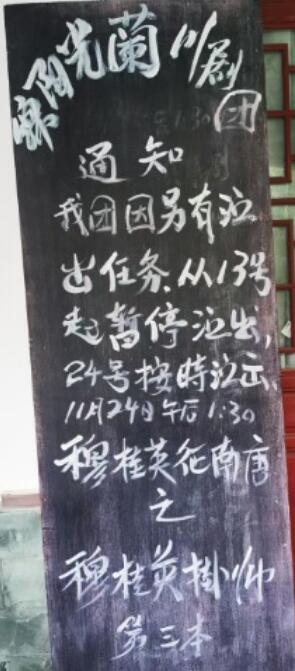 绵阳光蘭川剧团
通知
我团因另有演
出任务,从13号
起暫停演出,
24号按時演出.
11月24日午后1:30
穆桂英征南唐
之
穆桂英掛帅
第三本